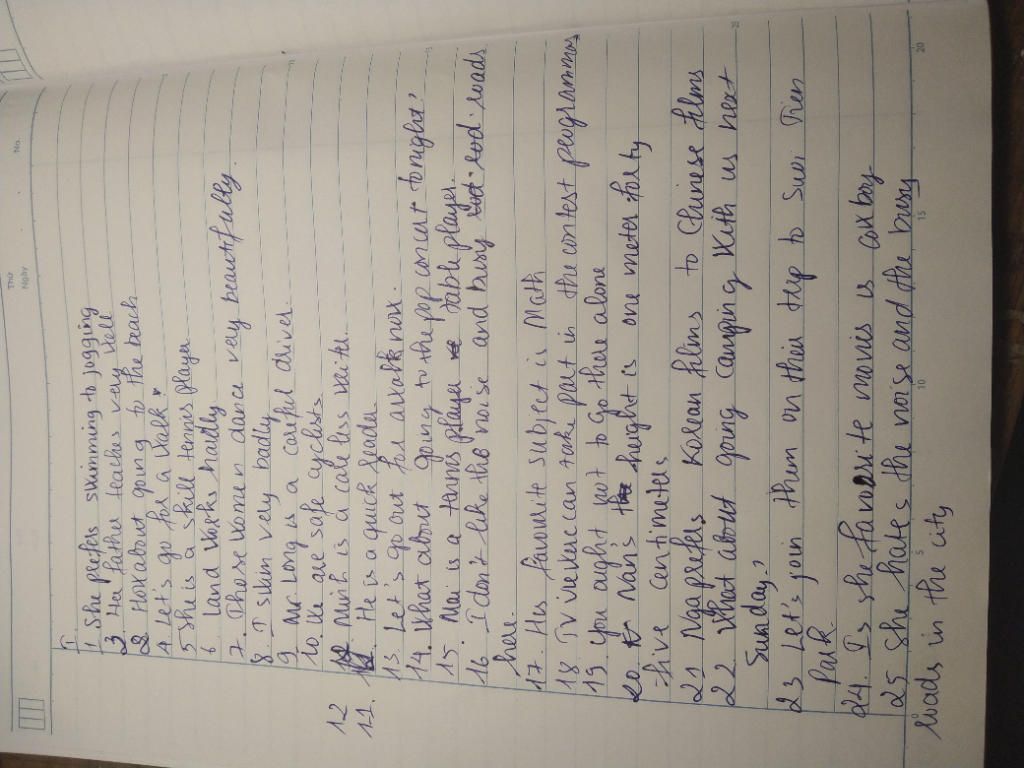 I
1. She prefers swimming to jogging
3 Her father teaches very well
2 How about going to the beach
4 Let's go for a walk.
5 She is a skill tennis player
6 Land works hardly
7. Those women dance very beautifully.
8. I swim very badly
9 Mr Long is a careful driver.
10. We are safe cyclists
12 Minh is a careless writer.
11. He is a quick reader
13. Let's go out for a walk now.
14. What about going to the pop concert tonight?
15. Mai is a tennis table player.
16 I don't like the noise and busy roads
here.
17. Her favourite subject is Math
18 TV viewer can take part in the contest programmes
19 you ought not to go there alone
20. Nan's height is one meter forty
five centimates
21 Nga prefers Korean films to Chinese films
22 What about going camping with us next
Sunday?
23 Let's join them on their trip to Suoi Tien
Park.
24. Is she favorite movie is cowboy
25 She hates the noise and the busy
roads in the city
No.
Thứ
Ngày
5
10
15
20